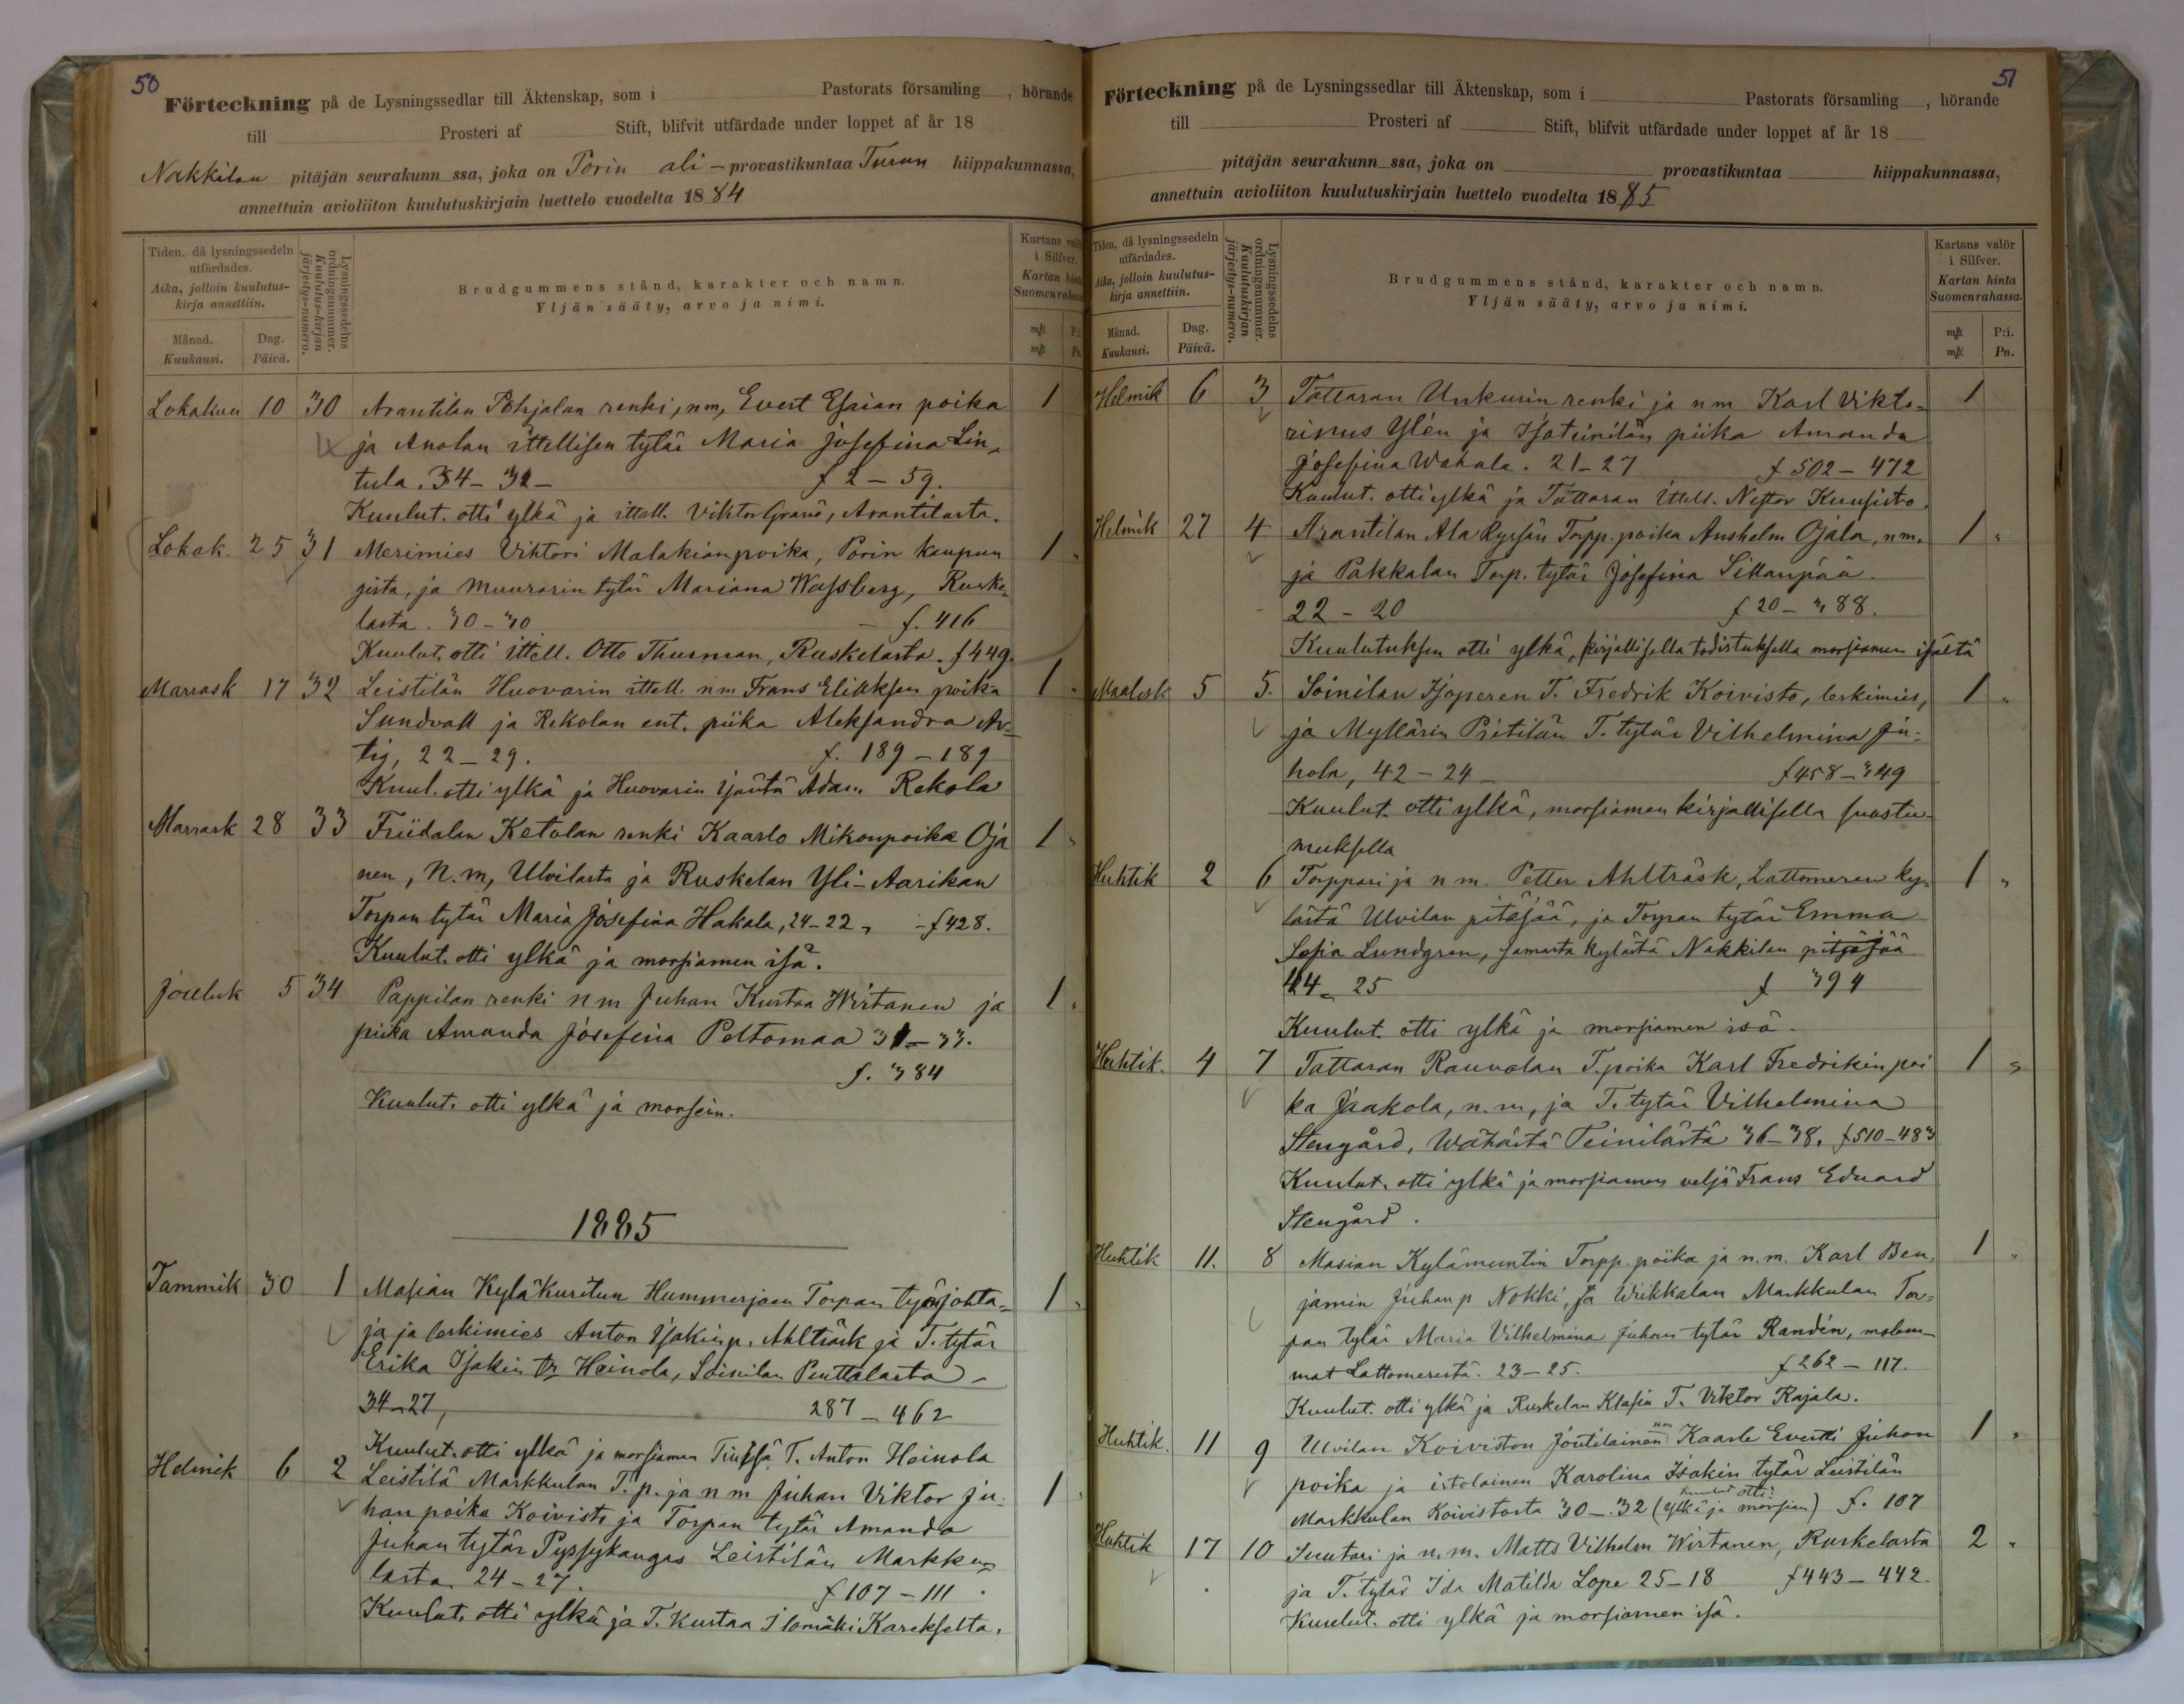 50
Förteckning på de Lysningssedlar till Äktenskap, som i Pastorats församling , hörande
till Prosteri af Stift, blifvit utfärdade under loppet af år 18
Nakkilan pitäjän seurakunn ssa, joka on Porin ali-provastikuntaa Turun hiippakunnassa,
annettuin avioliiton kuulutuskirjain luettelo vuodelta 1884
Tiden, då lysningssedeln utfärdades.
Aika, jolloin kuulutus-kirja annettiin.
Månad. Kuukausi.
Dag. Päivä.
Lysningssedelns ordningsnummer.
Kuulutus-kirjan järjestys-numero.
Brudgummens stånd, karakter och namn.
Yljän sääty, arvo ja nimi.
Kartans valör i Silfver.
Kartan hinta Suomenrahassa
mk P:i.
mk Pn.
Lokakuu 10 30 Arantilan Pohjalan renki, nm, Evert Esaian poika 1
ja Anolan ittellisen tytär Maria Josefina Lin-
tula. 34-32- f 2-59.
Kuulut. otti ylkä ja ittell. Viktor Granö, Arantilasta.
Lokak. 25 31 Merimies Vihtori Malakianpoika, Porin kaupun 1 "
gista, ja muurarin tytär Mariana Wassberg, Ruske-
lasta. 30-30 - f. 416
Kuulut. otti ittell. Otto Thurman, Ruskelasta. f 449.
Marrask 17 32 Leistilän Huovarin ittell. nm Frans Eliaksen poika 1 "
Sundvall ja Rekolan ent. piika Aleksandra Ar-
tig, 22-29. f. 189-189
Kuul. otti ylkä ja Huovarin isäntä Adam Rekola
Marrask 28 33 Friidalin Ketolan renki Kaarlo Mikonpoika Oja 1 "
nen, N.m, Ulvilasta ja Ruskelan Yli-Aarikan
Torpan tytär Maria Josefina Hakala, 24-22, -f 428.
Kuulut. otti ylkä ja morsiamen isä.
Jouluk 5 34 Pappilan renki nm Juhan Kustaa Wirtanen ja 1 "
piika Amanda Josefina Peltomaa 31-33.
f. 384
Kuulut. otti ylkä ja morsein.
1885
Tammik 30 1 Masian Kyläkuritun Hummerjoen Torpan työnjohta- 1 "
ja ja leskimies Anton Isakin p. Ahlträsk ja T. tytär
Erika Isakin tr Heinola, Soinilan Penttalasta -
34-27, 287-462
Kuulut. otti ylkä ja morsiamen T. Anton Heinola
Helmik 6 2 Leistilä Markkulan T. p. ja nm Juhan Viktor Ju- 1 "
hanpoika Koivisto ja Torpan tytär Amanda
Juhan tytär Pyssykangas Leistilän Markku-
lasta. 24-27. f 107-111.
Kuulut. otti ylkä ja T. Kustaa Ilomäki Karekselta.
51
Förteckning på de Lysningssedlar till Äktenskap, som i Pastorats församling , hörande
till Prosteri af Stift, blifvit utfärdade under loppet af år 18
pitäjän seurakunn ssa, joka on provastikuntaa hiippakunnassa,
annettuin avioliiton kuulutuskirjain luettelo vuodelta 1885
Tiden, då lysningssedeln utfärdades.
Aika, jolloin kuulutus-kirja annettiin.
Månad. Kuukausi.
Dag. Päivä.
Lysningssedelns ordningsnummer.
Kuulutuskirjan järjestys-numero.
Brudgummens stånd, karakter och namn.
Yljän sääty, arvo ja nimi.
Kartans valör i Silfver.
Kartan hinta Suomenrahassa.
mk P:i.
mk Pn.
Helmik 6 3 Tattaran Unkurin renki ja nm Karl Vikto- 1
rinus Ylén ja Isoteinilän piika Amanda
Josefina Wahala. 21-27 f 502-472
Kuulut. otti ylkä ja Tattaran Ittell. Nestor Kuusisto.
Helmik 27 4 Arantilan Ala Ryssän Torpp. poika Anshelm Ojala, nm. 1 "
ja Pakkalan Torp. tytär Josefina Sillanpää.
22-20 f 20-388.
Kuulutuksen otti ylkä, kirjallisella todistuksella morsiamen isältä
Maalisk 5 5. Soinilan Isoperen T. Fredrik Koivisto, leskimies, 1 "
ja Myllärin Pritilän T. tytär Vilhelmina Ju-
hola, 42-24- f 458-349
Kuulut. otti ylkä, morsiamen kirjallisella suostu-
muksella
Huhtik 2 6 Torppari ja nm. Petter Ahlträsk, Lattomeren ky- 1 "
lästä Ulvilan pitäjää, ja Torpan tytär Emma
Sofia Lundgren, samasta kylästä Nakkilan pitäjää
44-25 f 394
Kuulut. otti ylkä ja morsiamen isä.
Huhtik. 4 7 Tattaran Rauvolan T. poika Karl Fredrikin poi 1 "
ka Jaakola, n.m, ja T. tytär Vilhelmina
Stengård, Wähästä Teinilästä 36-38. f 510-483
Kuulut. otti ylkä ja morsiamen veljä Frans Eduard
Stengård.
Huhtik 11. 8 Masian Kylämuntin Torpp. poika ja n.m. Karl Ben- 1 "
jamin Juhan p Nokki, ja Wiikkalan Markkulan Tor-
pan tytär Maria Vilhelmina Juhan tytär Randén, molem-
mat Lattomerestä. 23-25. f 262-117.
Kuulut. otti ylkä ja Ruskelan Klasin T. Viktor Rajala.
Huhtik. 11 9 Ulvilan Koiviston Joutilainen nm Kaarle Evertti Juhan 1 "
poika ja istolainen Karolina Isakin tytär Leistilän
Markkulan Koivistosta 30-32 (Kuulut otti: ylkä ja morsian) f. 107
Huhtik 17 10 Suutari ja n.m. Matts Vilhelm Wirtanen, Ruskelasta 2 "
ja T. tytär Ida Matilda Lope 25-18 f 443-442.
Kuulut. otti ylkä ja morsiamen isä.